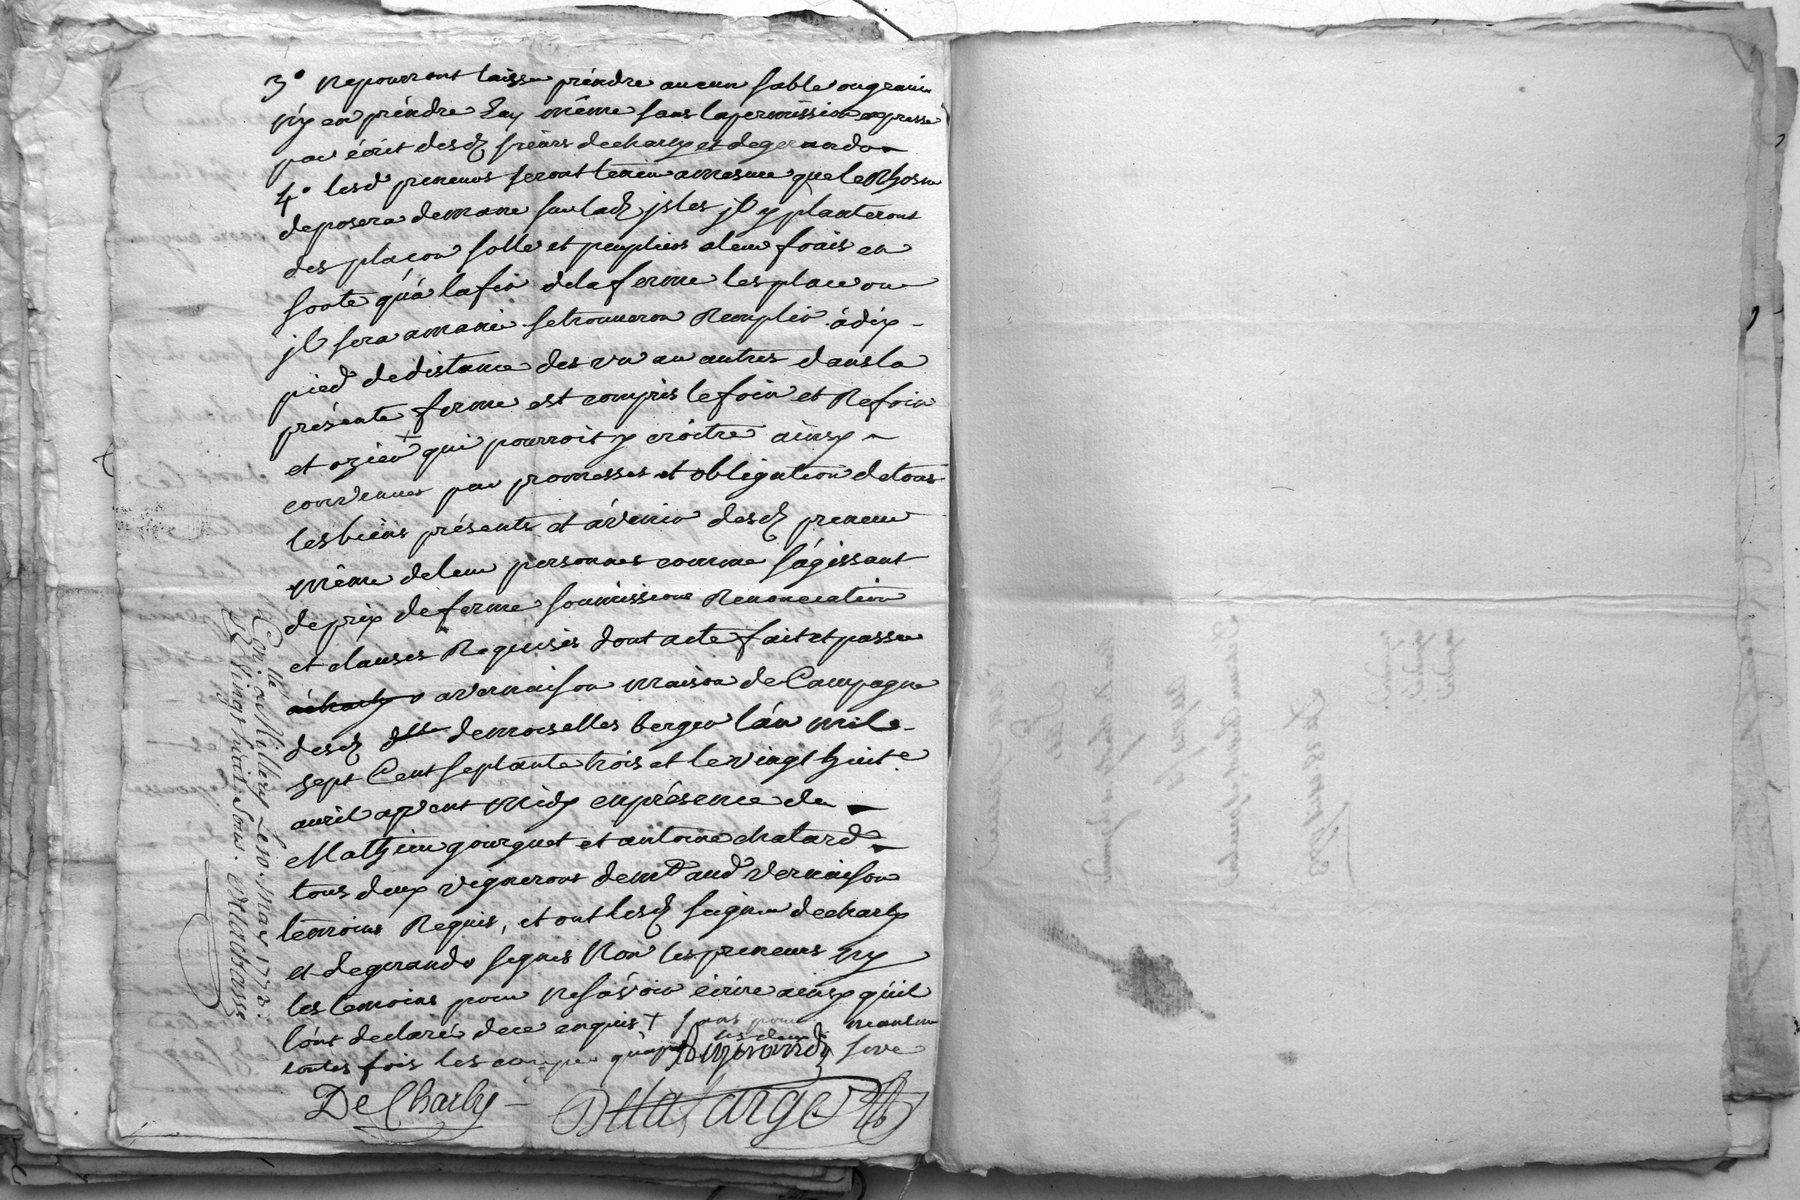 3° ne pourront laisser prendre aucun sable ou gravier
ny en prendre Luy même sans la permission expresse
par écrit desd sieurs decharly et degerando
4° lesd preneurs seront tenu a mesure que le Rhosne
deposera demane sur lad jsles jl y planteront
des plançon solle et peuplier a leur frais en
sorte qu'a la fin dela ferme les place ou
jl sera amané se trouveron Remplir à dix
pied de distance des un au autres dans la
présente ferme est compris le foin et Refoin
et ozier + qui pourroit y croitre ainsy
convenues par promesses et obligation de tous
les biens présents et àvenir desd preneur
même de leur personnes comme s'agissant
de prix de ferme soumissions Renonciation
et clauses Requises dont acte fait et passé
à charly a vernaison maison de Campagne
desd dlle demoiselles berger l'an mil
sept Cent septante trois et le vingt huit e
avril avant midy en présence de
Mathieu gourguet et antoine chatard
tous deux vignerons de md aud vernaison
temoins Requis, et ont lesd seigneur decharly
et degerando signés Non les preneurs ny
les temoins pour ne sàvoir écrire ainsy qu'il
l'ont declaré de ce enquis + sans pouvoir
toutes fois les couper qu'a
les deux
seve
Degerando
De Charly
Delafarge
Con.lle
a Millery Le 10. may 1773.
R vingt huit sous.